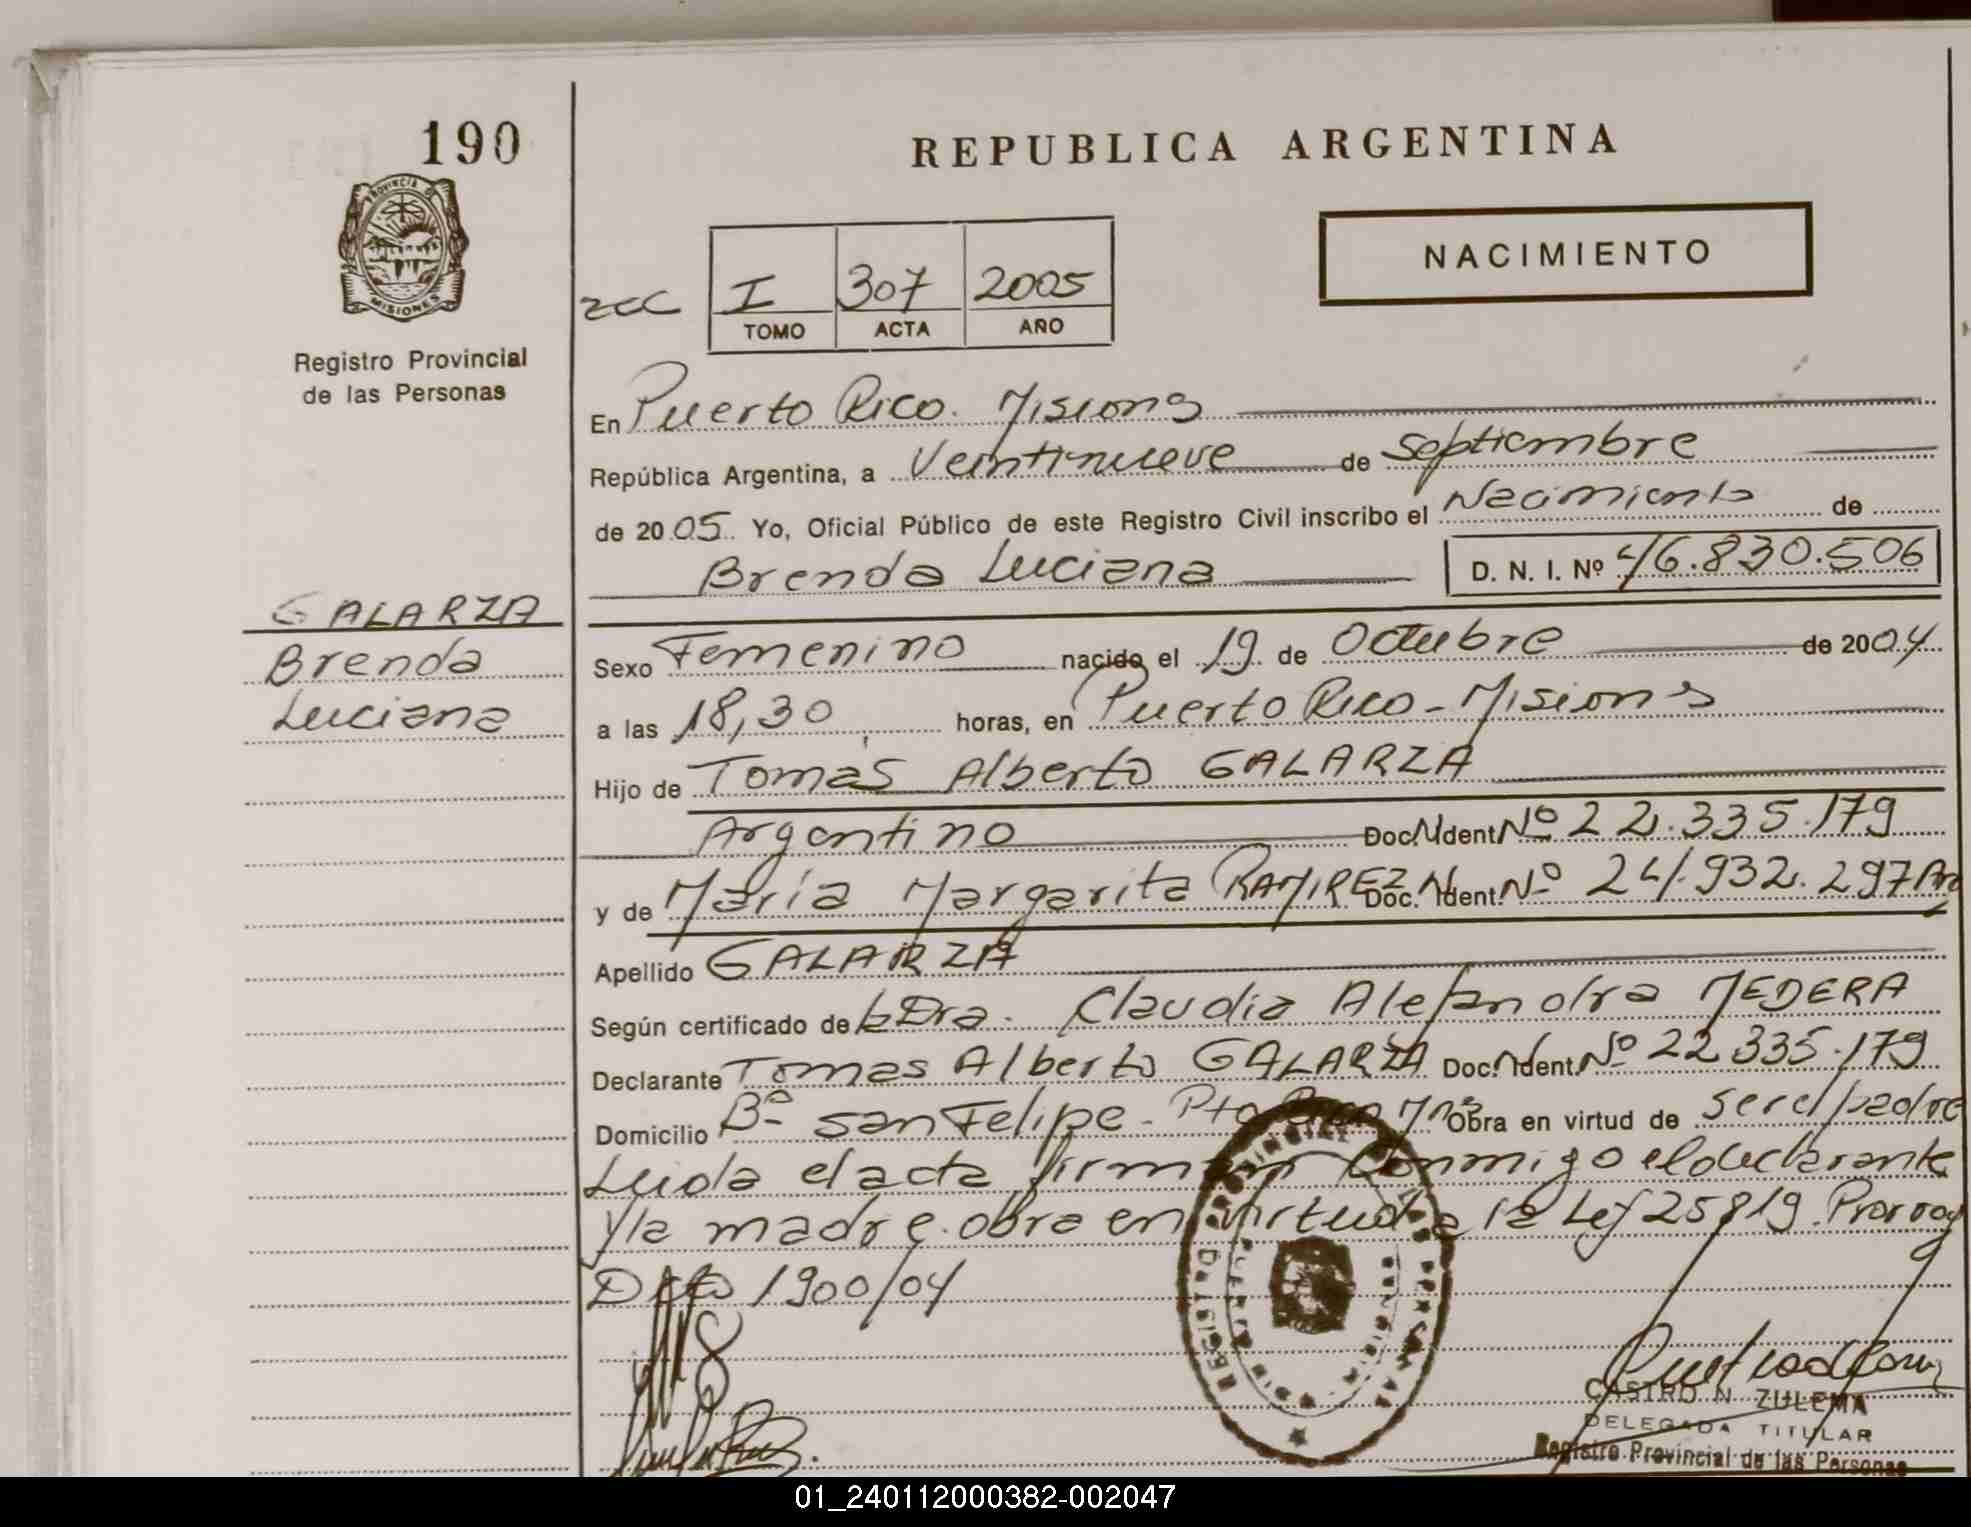 190
REPUBLICA ARGENTINA
PROVINCIA DE
MISIONES
NACIMIENTO
I 307 2005
TOMO ACTA AÑO
Registro Provincial
de las Personas
En Puerto Rico. Misiones
República Argentina, a Veintinueve de Septiembre
de 2005. Yo, Oficial Público de este Registro Civil inscribo el Nacimiento de
Brenda Luciana D. N. I. Nº 46.830.506
GALARZA
Brenda
Luciana
Sexo Femenino nacido el 19 de Octubre de 2004
a las 18,30 horas, en Puerto Rico - Misiones
Hijo de Tomas Alberto GALARZA
Argentino Doc. Ident. Nº 22.335.179
y de María Margarita RAMIREZ Doc. Ident. Nº 24.932.297 Arg
Apellido GALARZA
Según certificado de la Dra. Claudia Alejandra MEDERA
Declarante Tomas Alberto GALARZA Doc. Ident. Nº 22.335.179
Domicilio Bº San Felipe - Pto Rico Mnes Obra en virtud de ser el padre
Leida el acta firman conmigo el declarante
y la madre. obra en virtud a la Ley 25819. Prorrog
Dcto 1900/04
REGISTRO PROVINCIAL DE LAS PERSONAS
CASTRO N. ZULEMA
DELEGADA TITULAR
Registro Provincial de las Personas
01_240112000382-002047